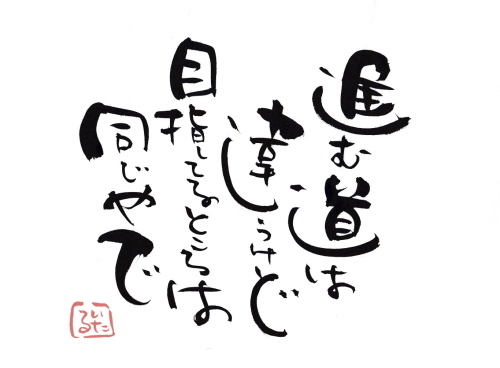 進む道は
違うけど
目指してるところは
同じやで